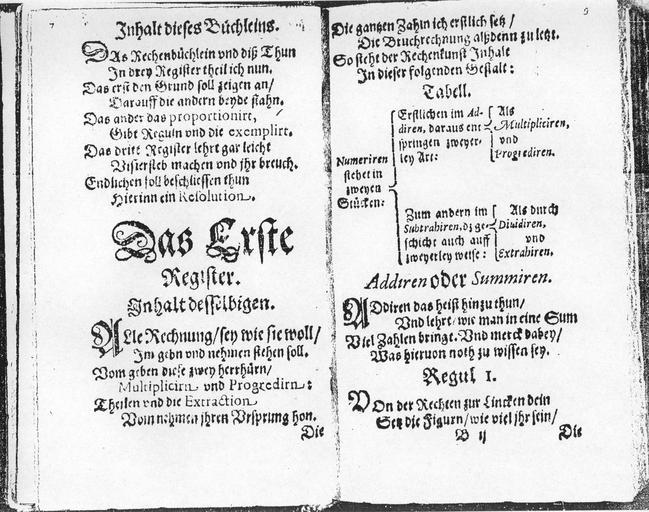 7
Inhalt dieses Büchleins.
DAs Rechenbüchlein vnd diß Thun
In drey Register theil ich nun.
Das erst den Grund soll zeigen an/
Darauff die andern beyde stahn.
Das ander das proportionirt,
Gibt Reguln vnd die exemplirt.
Das dritt Register lehrt gar leicht
Visiersteb machen vnd jhr breuch.
Endlichen soll beschliessen thun
Hierinn ein Resolution.
Das Erste
Register.
Inhalt desselbigen.
ALle Rechnung/sey wie sie woll/
Im gebn vnd nehmen stehen soll.
Vom geben diese zwey herrhürn/
Multiplicirn vnd Progredirn:
Theilen vnd die Extraction
Vom nehmen jhren Vrsprung hon.
Die
9
Die gantzen Zahln ich erstlich setz/
Die Bruchrechnung alßdenn zu letzt.
So steht der Rechenkunst Inhalt
In dieser folgenden Gestalt:
Tabell.
Numeriren
stehet in
zweyen
Stücken:
Erstlichen im Ad-
diren, daraus ent
springen zweyer-
ley Art:
Als
Multipliciren,
vnd
Progrediren.
Zum andern im
Subtrahiren, dz ge-
schicht auch auff
zweyerley weise:
Als durch
Diuidiren,
vnd
Extrahiren.
Addiren oder Summiren.
ADdiren das heist hinzu thun/
Vnd lehrt/wie man in eine Sum
Viel Zahlen bringt. Vnd merck dabey/
Was hieruon noth zu wissen sey.
Regul 1.
VOn der Rechten zur Lincken dein
Setz die Figurn/wie viel jhr sein/
B ij
Die